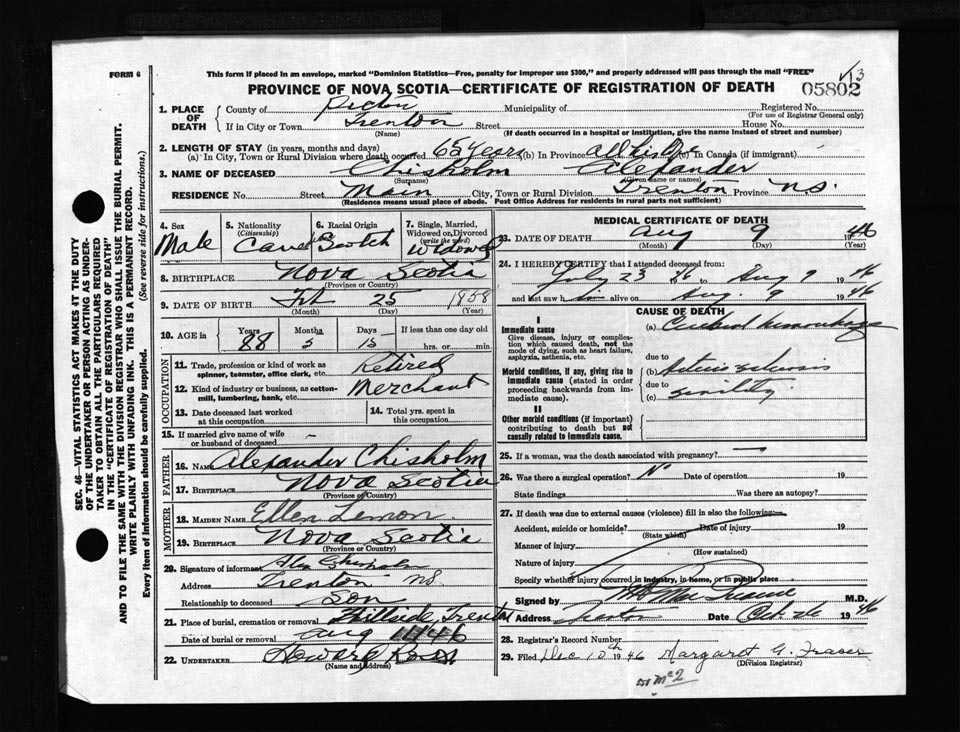 FORM 6
This form if placed in an envelope, marked "Dominion Statistics—Free, penalty for improper use $300," and properly addressed will pass through the mail "FREE"
V13
PROVINCE OF NOVA SCOTIA—CERTIFICATE OF REGISTRATION OF DEATH
05802
1. PLACE OF DEATH
County of Pictou Municipality of Registered No.
(For use of Registrar General only)
If in City or Town Trenton Street House No.
(Name) (If death occurred in a hospital or institution, give the name instead of street and number)
2. LENGTH OF STAY (in years, months and days)
(a) In City, Town or Rural Division where death occurred 65 years (b) In Province all his life (c) In Canada (if immigrant)
3. NAME OF DECEASED Chisholm Alexander
(Surname) (Given name or names)
RESIDENCE No. Street Main City, Town or Rural Division Trenton Province N.S.
(Residence means usual place of abode. Post Office Address for residents in rural parts not sufficient)
4. Sex Male
5. Nationality (Citizenship) Canad
6. Racial Origin Scotch
7. Single, Married, Widowed or Divorced (write the word) Widowed
8. BIRTHPLACE Nova Scotia
(Province or Country)
9. DATE OF BIRTH Feb 25 1858
(Month) (Day) (Year)
10. AGE in Years 88 Months 5 Days 15 If less than one day old hrs. or min.
OCCUPATION
11. Trade, profession or kind of work as spinner, teamster, office clerk, etc. Retired
12. Kind of industry or business, as cotton-mill, lumbering, bank, etc. Merchant
13. Date deceased last worked at this occupation
14. Total yrs. spent in this occupation
15. If married give name of wife or husband of deceased –
FATHER
16. Name Alexander Chisholm
17. Birthplace Nova Scotia
(Province or Country)
MOTHER
18. Maiden Name Ellen Lemon
19. Birthplace Nova Scotia
(Province or Country)
20. Signature of informant Alex Chisholm
Address Trenton N.S.
Relationship to deceased Son
21. Place of burial, cremation or removal Hillside, Trenton
Date of burial or removal Aug 11/46
22. UNDERTAKER Howard Ross
(Name and address)
MEDICAL CERTIFICATE OF DEATH
23. DATE OF DEATH Aug 9 1946
(Month) (Day) (Year)
24. I HEREBY CERTIFY that I attended deceased from:
July 23 46 to Aug 9 1946
and last saw him alive on Aug. 9 1946
CAUSE OF DEATH
I
Immediate cause
Give disease, injury or complication which caused death, not the mode of dying, such as heart failure, asphyxia, asthenia, etc.
(a) Cerebral hemorrhage
due to
Morbid conditions, if any, giving rise to immediate cause (stated in order proceeding backwards from immediate cause).
(b) Arterio sclerosis
due to
(c) Senility
II
Other morbid conditions (if important) contributing to death but not causally related to immediate cause.
25. If a woman, was the death associated with pregnancy? —
26. Was there a surgical operation? No Date of operation 19
State findings Was there an autopsy?
27. If death was due to external causes (violence) fill in also the following:—
Accident, suicide or homicide? Date of injury 19
(State which)
Manner of injury
(How sustained)
Nature of injury
Specify whether injury occurred in industry, in home, or in public place
Signed by M.D.
Address Trenton Date Oct. 26 1946
28. Registrar's Record Number
29. Filed Dec 10th 1946 Margaret G. Fraser
(Division Registrar)
SEC. 46—VITAL STATISTICS ACT MAKES IT THE DUTY
OF THE UNDERTAKER OR PERSON ACTING AS UNDER-
TAKER TO OBTAIN ALL THE PARTICULARS REQUIRED
IN THE "CERTIFICATE OF REGISTRATION OF DEATH"
AND TO FILE THE SAME WITH THE DIVISION REGISTRAR WHO SHALL ISSUE THE BURIAL PERMIT.
WRITE PLAINLY WITH UNFADING INK. THIS IS A PERMANENT RECORD.
Every item of Information should be carefully supplied. (See reverse side for instructions.)